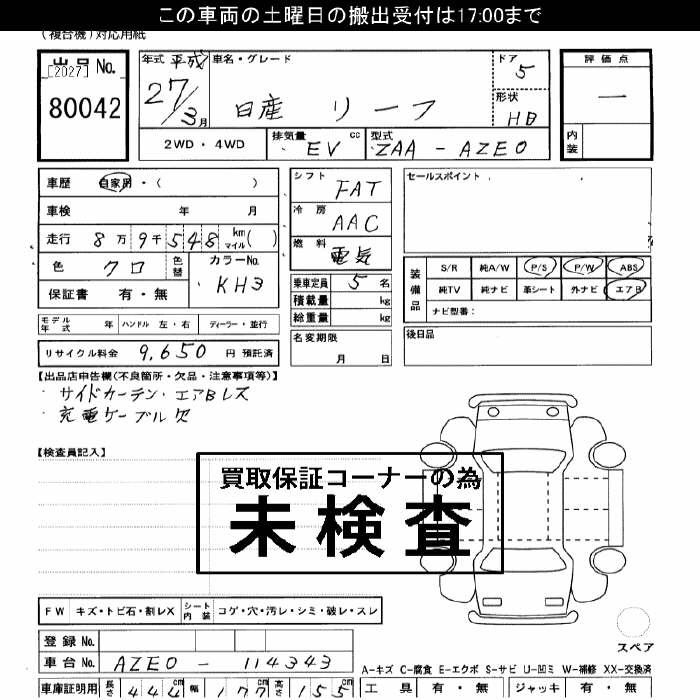 この車両の土曜日の搬出受付は17:00まで
(複合機)対応用紙
出品No.
[2027]
80042
年式 平成 27/3月
車名・グレード
日産 リーフ
ドア 5
形状 HB
2WD・4WD
排気量 EV cc
型式 ZAA - AZE0
評価点
—
内装
車歴 自家用・( )
車検 年 月
走行 8万9千548 km マイル ( )
色 クロ 色替
カラーNo. KH3
保証書 有・無
シフト FAT
冷房 AAC
燃料 電気
乗車定員 5名
積載量 kg
総重量 kg
セールスポイント
装備品
S/R 純A/W P/S P/W ABS
純TV 純ナビ 革シート 外ナビ エアB
ナビ型番:
モデル年式 年 ハンドル 左・右 ディーラー・並行
名変期限 月 日
後日品
リサイクル料金 9,650 円 預託済
【出品店申告欄(不良箇所・欠品・注意事項等)】
・サイドカーテン・エアBレス
・充電ケーブル欠
【検査員記入】
買取保証コーナーの為
未検査
FW キズ・トビ石・割レX
シート内装 コゲ・穴・汚レ・シミ・破レ・スレ
スペア
登録No.
車台No. AZE0 - 114343
A-キズ C-腐食 E-エクボ S-サビ U-凹ミ W-補修 XX-交換済
車庫証明用 長さ 444cm 幅 177cm 高さ 155cm
工具 有・無 ジャッキ 有・無